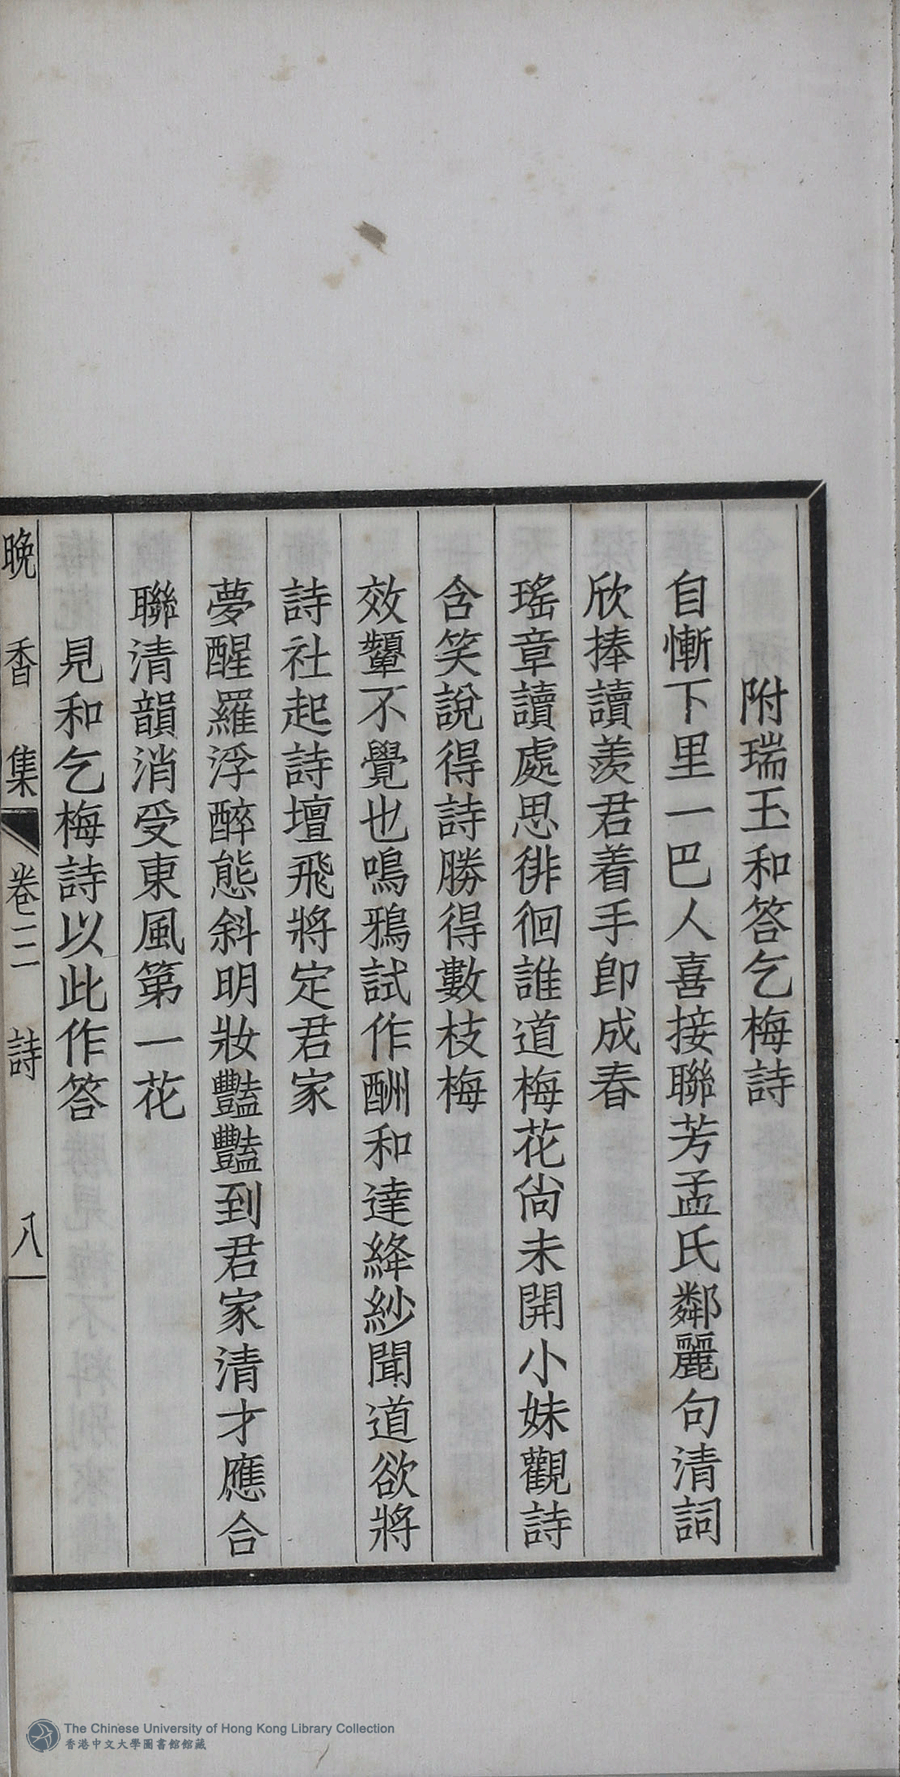 附瑞玉和答乞梅詩
自慚下里一巴人喜接聯芳孟氏鄰麗句清詞
欣捧讀羨君着手即成春
瑤章讀處思徘徊誰道梅花尙未開小妹觀詩
含笑說得詩勝得數枝梅
效顰不覺也鳴鴉試作酬和達絳紗聞道欲將
詩社起詩壇飛將定君家
夢醒羅浮醉態斜明妝豔豔到君家清才應合
聯清韻消受東風第一花
見和乞梅詩以此作答
晚香集 卷三 詩 八
The Chinese University of Hong Kong Library Collection
香港中文大學圖書館館藏